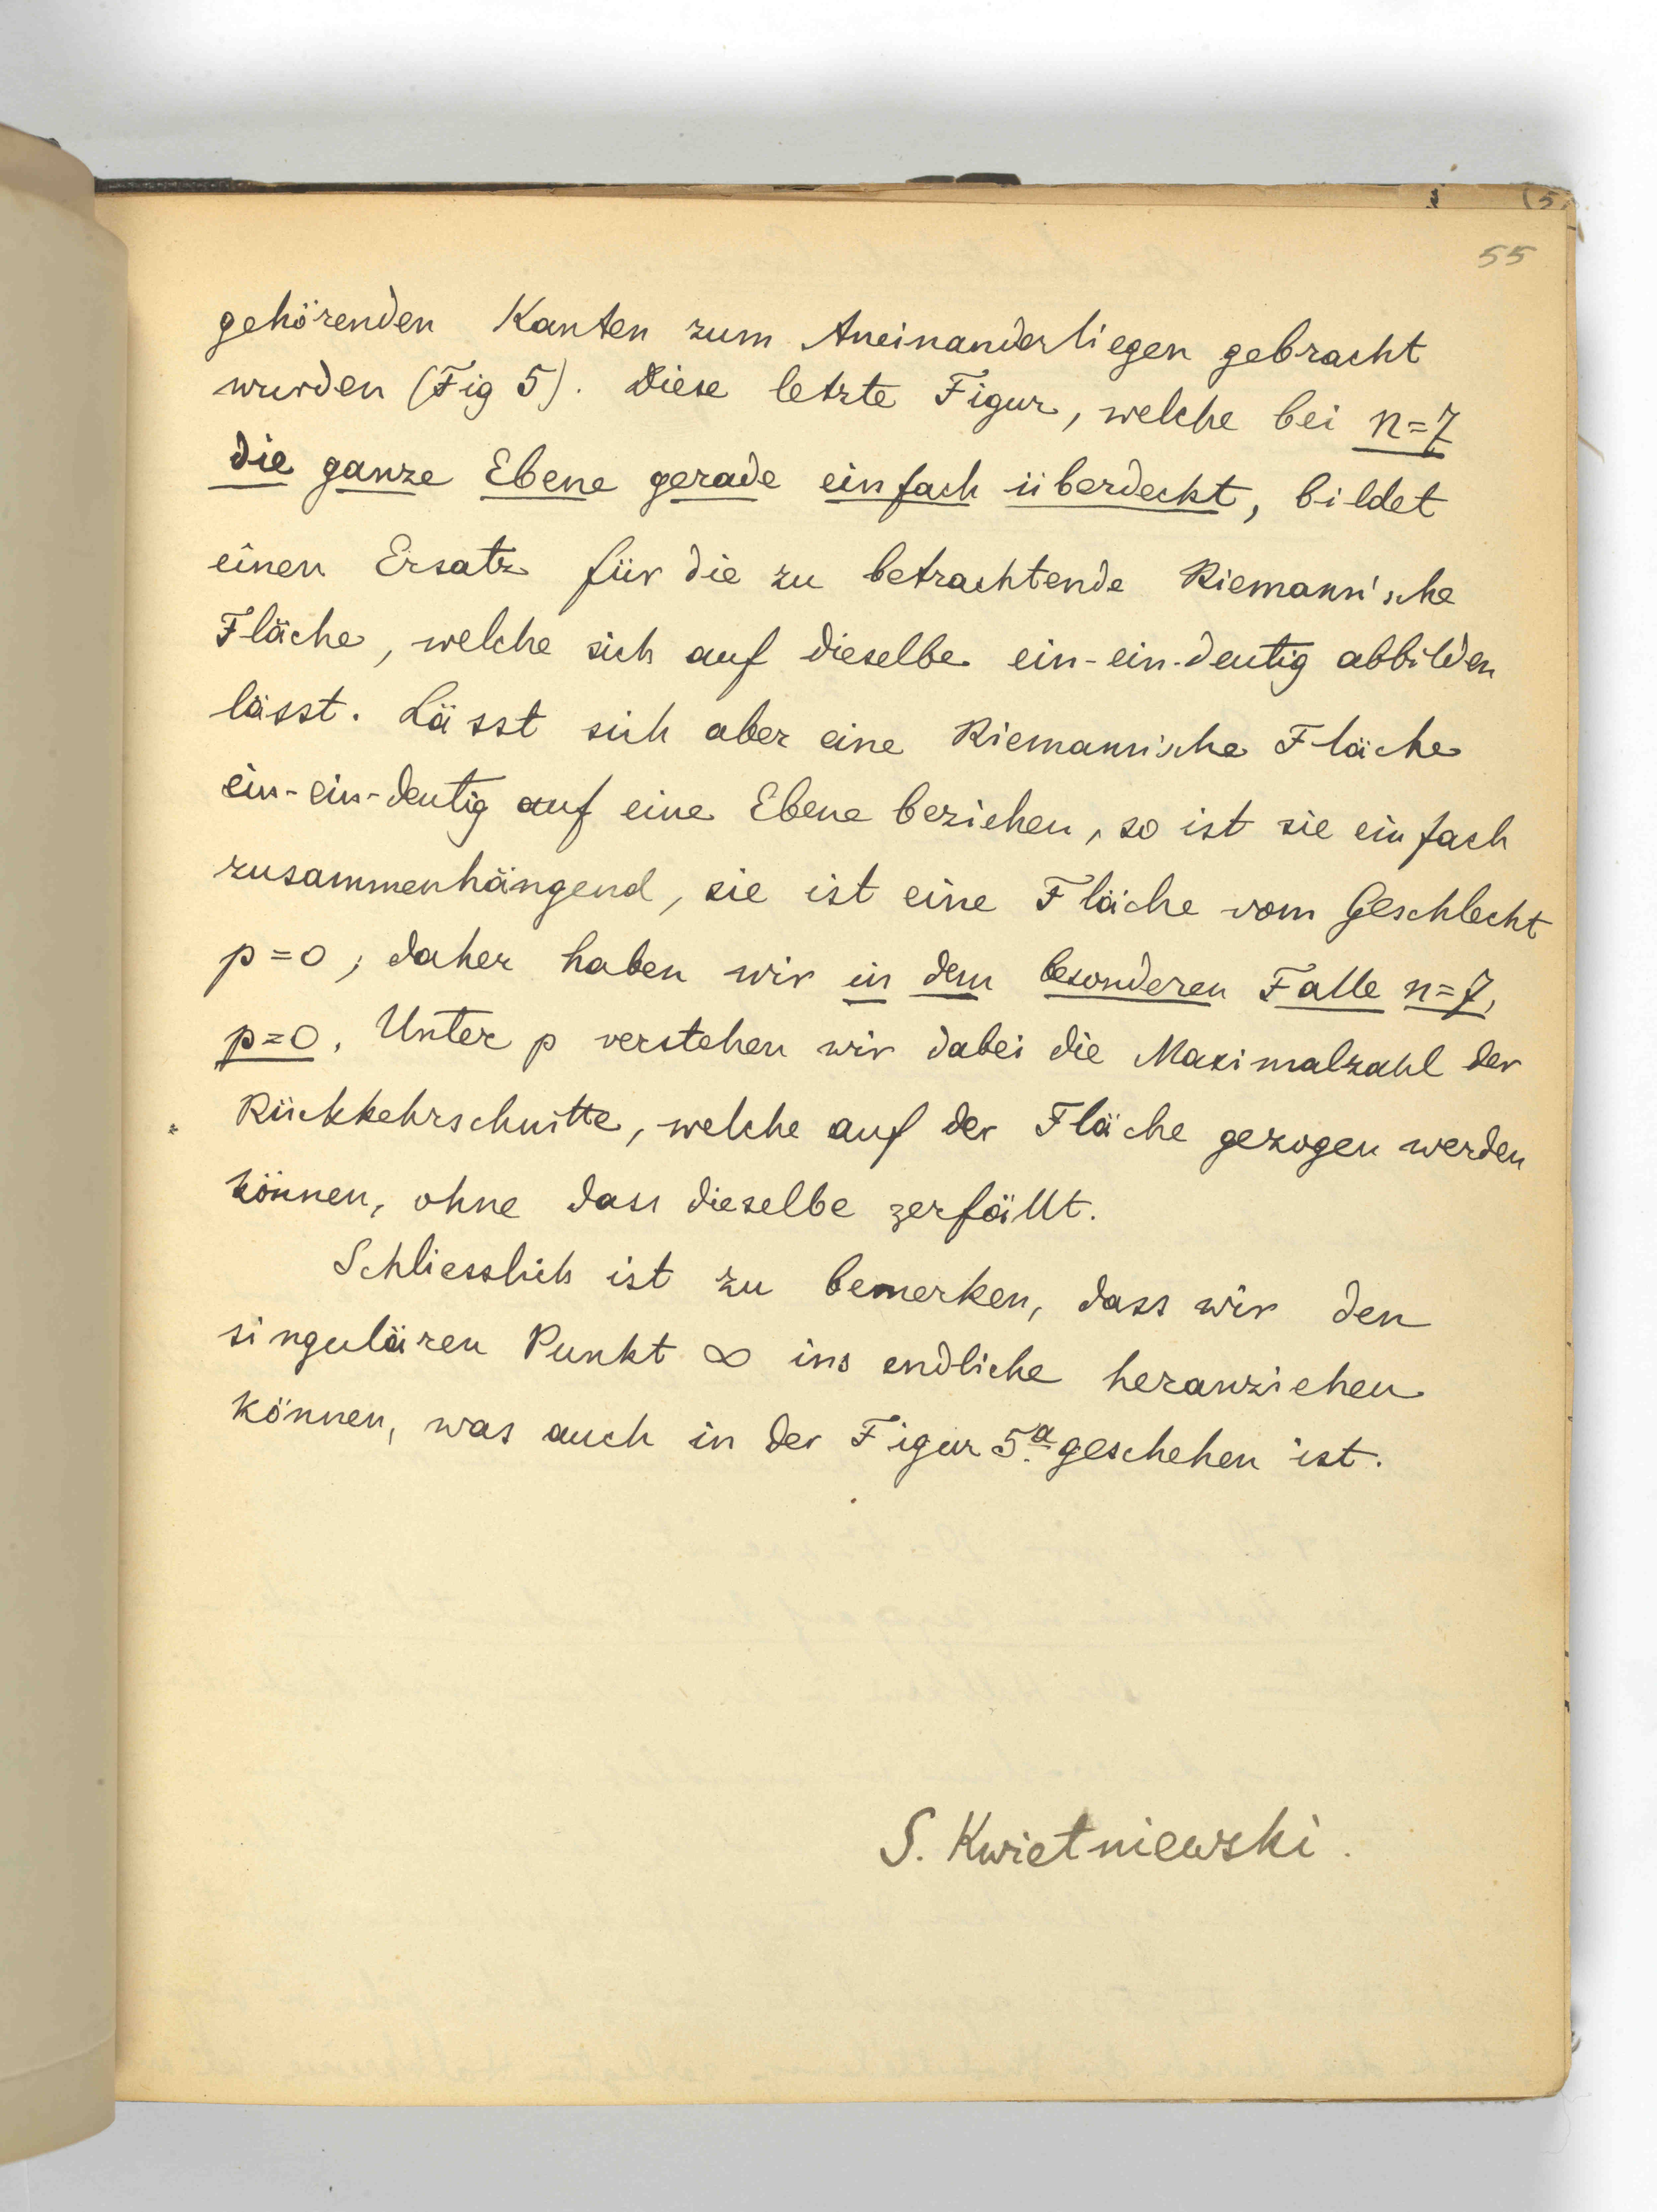 55
gehörenden Kanten zum Aneinanderliegen gebracht
wurden (Fig 5). Diese letzte Figur, welche bei n=7
die ganze Ebene gerade einfach überdeckt, bildet
einen Ersatz für die zu betrachtende Riemann'sche
Fläche, welche sich auf dieselbe ein-ein-deutig abbilden
lässt. Lässt sich aber eine Riemannische Fläche
ein-ein-deutig auf eine Ebene beziehen, so ist sie einfach
zusammenhängend, sie ist eine Fläche vom Geschlecht
p=0; daher haben wir in dem besonderen Falle n=7,
p=0. Unter p verstehen wir dabei die Maximalzahl der
Rückkehrschnitte, welche auf der Fläche gezogen werden
können, ohne dass dieselbe zerfällt.
Schliesslich ist zu bemerken, dass wir den
singulären Punkt ∞ ins endliche heranziehen
können, was auch in der Figur 5.a geschehen ist.
S. Kwietniewski.